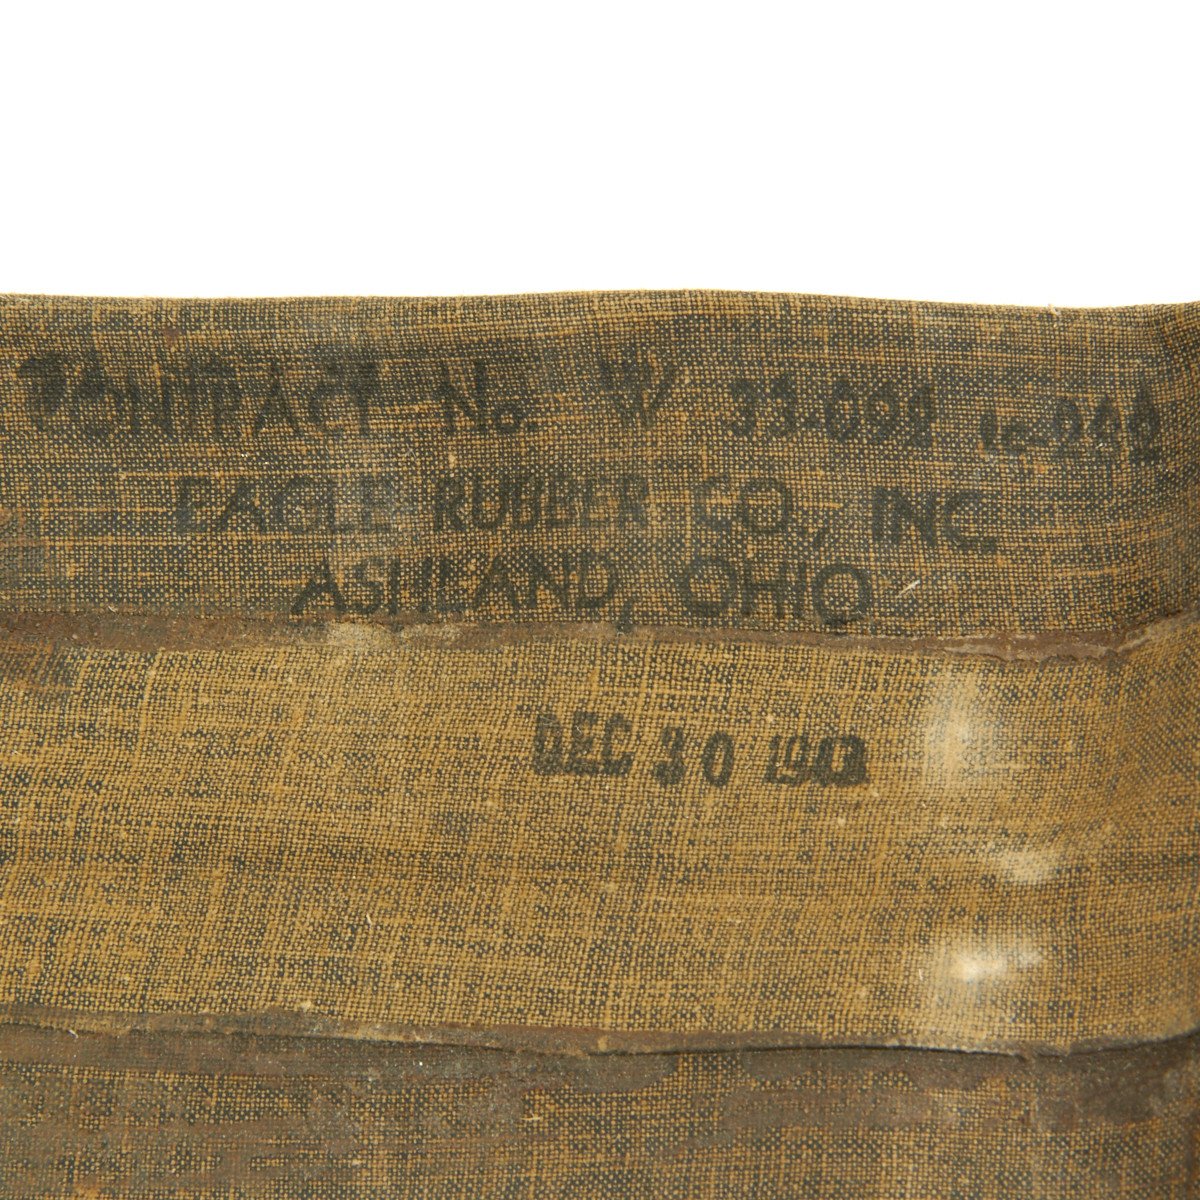 CONTRACT No. W 33-092
EAGLE RUBBER CO., INC.
ASHLAND, OHIO
DEC 30 1943